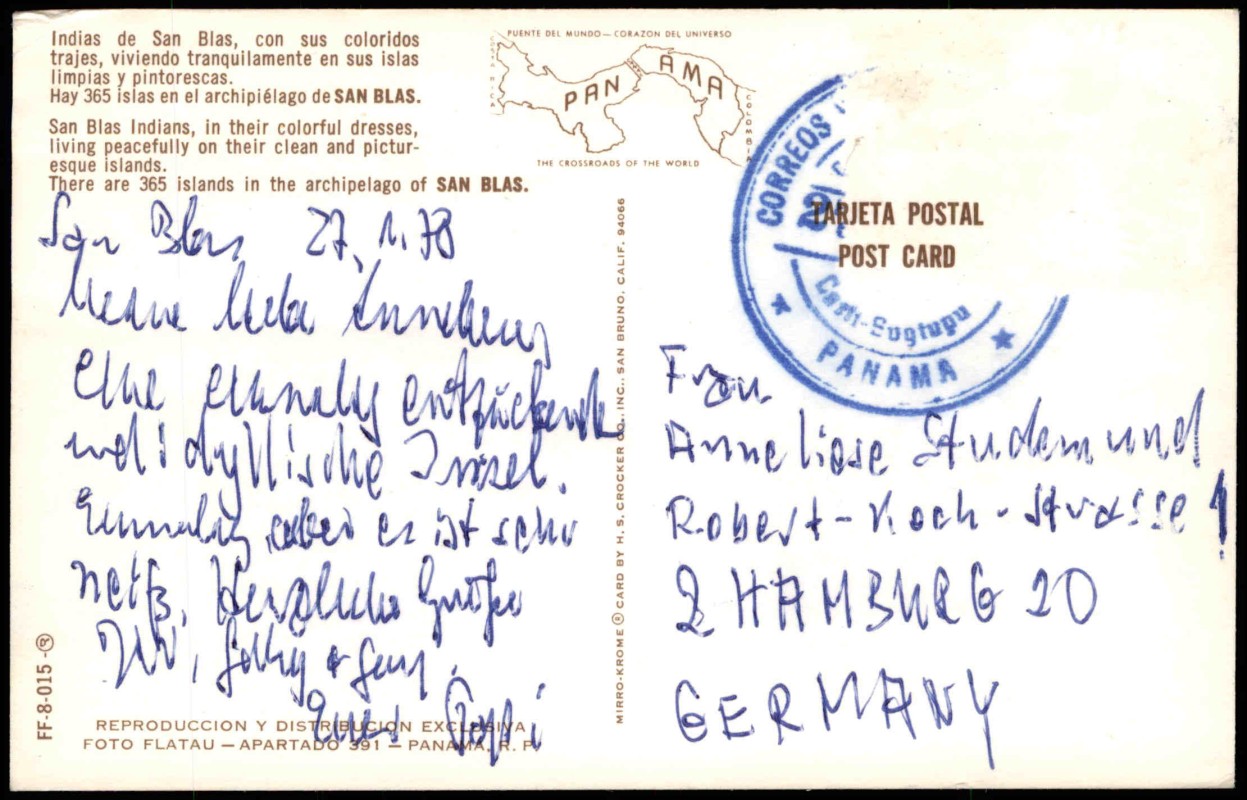 Indias de San Blas, con sus coloridos
trajes, viviendo tranquilamente en sus islas
limpias y pintorescas.
Hay 365 islas en el archipiélago de SAN BLAS.
San Blas Indians, in their colorful dresses,
living peacefully on their clean and pictur-
esque islands.
There are 365 islands in the archipelago of SAN BLAS.
PUENTE DEL MUNDO — CORAZON DEL UNIVERSO
COSTA RICA
PANAMA
COLOMBIA
THE CROSSROADS OF THE WORLD
CORREOS
PANAMA
TARJETA POSTAL
POST CARD
San Blas 27.1.78
Meine liebe
Eine einmalig entzückende
und idyllische Insel.
Einmalig, aber es ist sehr
nett. Herzliche Grüße
Eure
Frau
Anneliese Studemund
Robert-Koch-Strasse
2 HAMBURG 20
GERMANY
MIRRO-KROME ® CARD BY H. S. CROCKER CO., INC., SAN BRUNO, CALIF. 94066
FF-8-015
REPRODUCCION Y DISTRIBUCION EXCLUSIVA
FOTO FLATAU — APARTADO 391 — PANAMA, R. P.